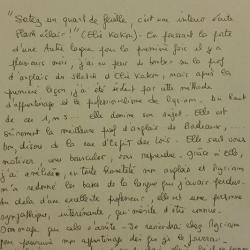 "Sortez un quart de feuille, c'est une interro surprise
flash éclair!" (Elli Kakou) - En passant la porte
d'une autre langue pour la première fois il y a
plusieurs mois, j'ai eu peur de tomber sur la prof
d'anglais du sketch d'Elli Kakou, mais après la
première leçon, j'ai été séduit par cette méthode
d'apprentissage et le professionnalisme de Myriam. Du haut
de ses 1, m5... elle domine son sujet. Elle est
sûrement la meilleure prof d'anglais de Bordeaux,...
bon, disons de la rue de l'esprit des lois. Elle sait vous
motiver, vous bousculer, vous reprendre. Grâce à elle,
j'ai amélioré, en toute honnêteté mon anglais et Myriam
m'a redonné les bases de la langue que j'avais perdues.
Au delà d'une excellente professeur, elle est une personne
sympathique, intéressante, qui mérite d'être connue.
Dommage que cela s'arrête - Je reviendrai chez Myriam
pour poursuivre mon apprentissage dès que je le pourrai -